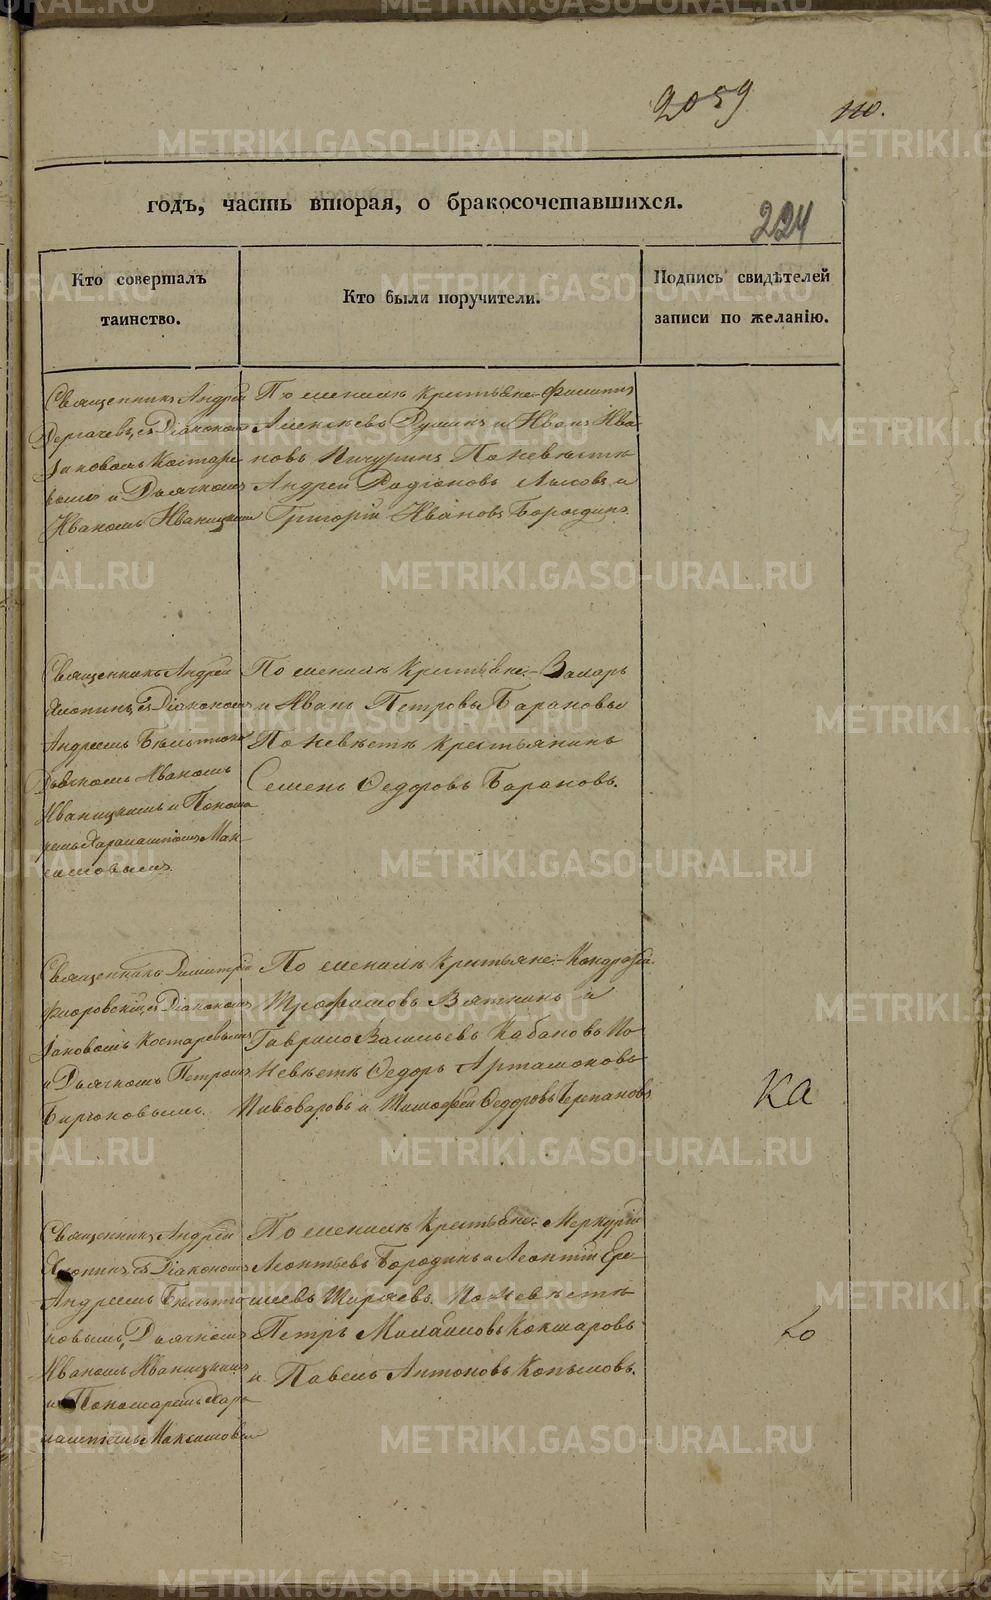 2059
110.
годъ, часть вторая, о бракосочетавшихся.
224
Кто совершалъ
таинство.
Кто были поручители.
Подпись свидѣтелей
записи по желанію.
Священникъ Андрей
Дергачевъ, съ Діакономъ
Іаковомъ Костаре
вымъ и Дьячкомъ
Иваномъ Иваницкимъ
По женихѣ крестьяне: Филиппъ
Алексѣевъ и Иванъ Ива
новъ Пичугинъ По невѣстѣ
Андрей Родіоновъ Лысовъ и
Григорій Ивановъ Бородинъ.
Священникъ Андрей
съ Діакономъ
Андреемъ
Дьячкомъ Иваномъ
Иваницкимъ и Понома
ремъ Харалампіемъ Мак-
симовымъ.
По женихѣ Крестьяне:
и Иванъ Петровы Барановы
По невѣстѣ крестьянинъ
Семенъ Ѳедоровъ Барановъ.
Священникъ Димитрій
Флоровскій, съ Діакономъ
Іаковомъ Костаревымъ
и Дьячкомъ Петромъ
Бирюковымъ.
По женихѣ Крестьяне: Кондратій
Трофимовъ Вяткинъ и
Гаврило Васильевъ Кабановъ По
невѣстѣ Ѳедоръ Артамоновъ
Пивоваровъ и Тимофей Ѳедоровъ Черепановъ
ка
Священникъ Андрей
съ Діакономъ
Андреемъ
ковымъ, Дьячкомъ
Иваномъ Иваницкимъ
и Пономаремъ Хара
лампіемъ Максимовымъ
По женихѣ Крестьяне: Меркурій
Леонтьевъ Бородинъ и Леонтій Ере
мѣевъ Ширяевъ. По невѣстѣ
Петръ Кокшаровъ
и Павелъ Антоновъ Копыловъ.
METRIKI.GASO-URAL.RU